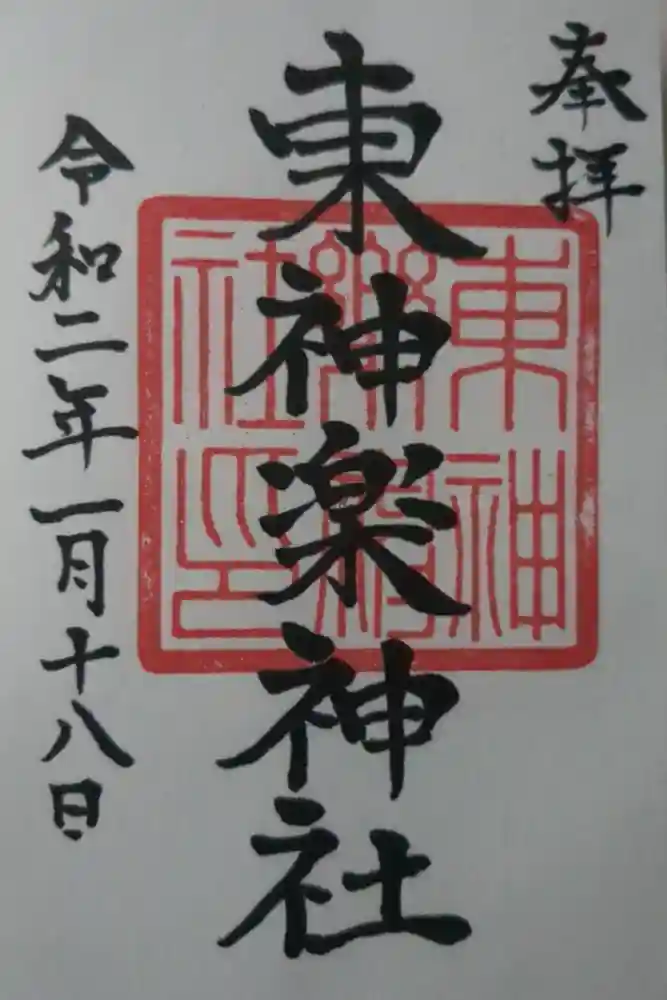 奉拝
東神楽神社
東神
樂神
社印
令和二年一月十八日